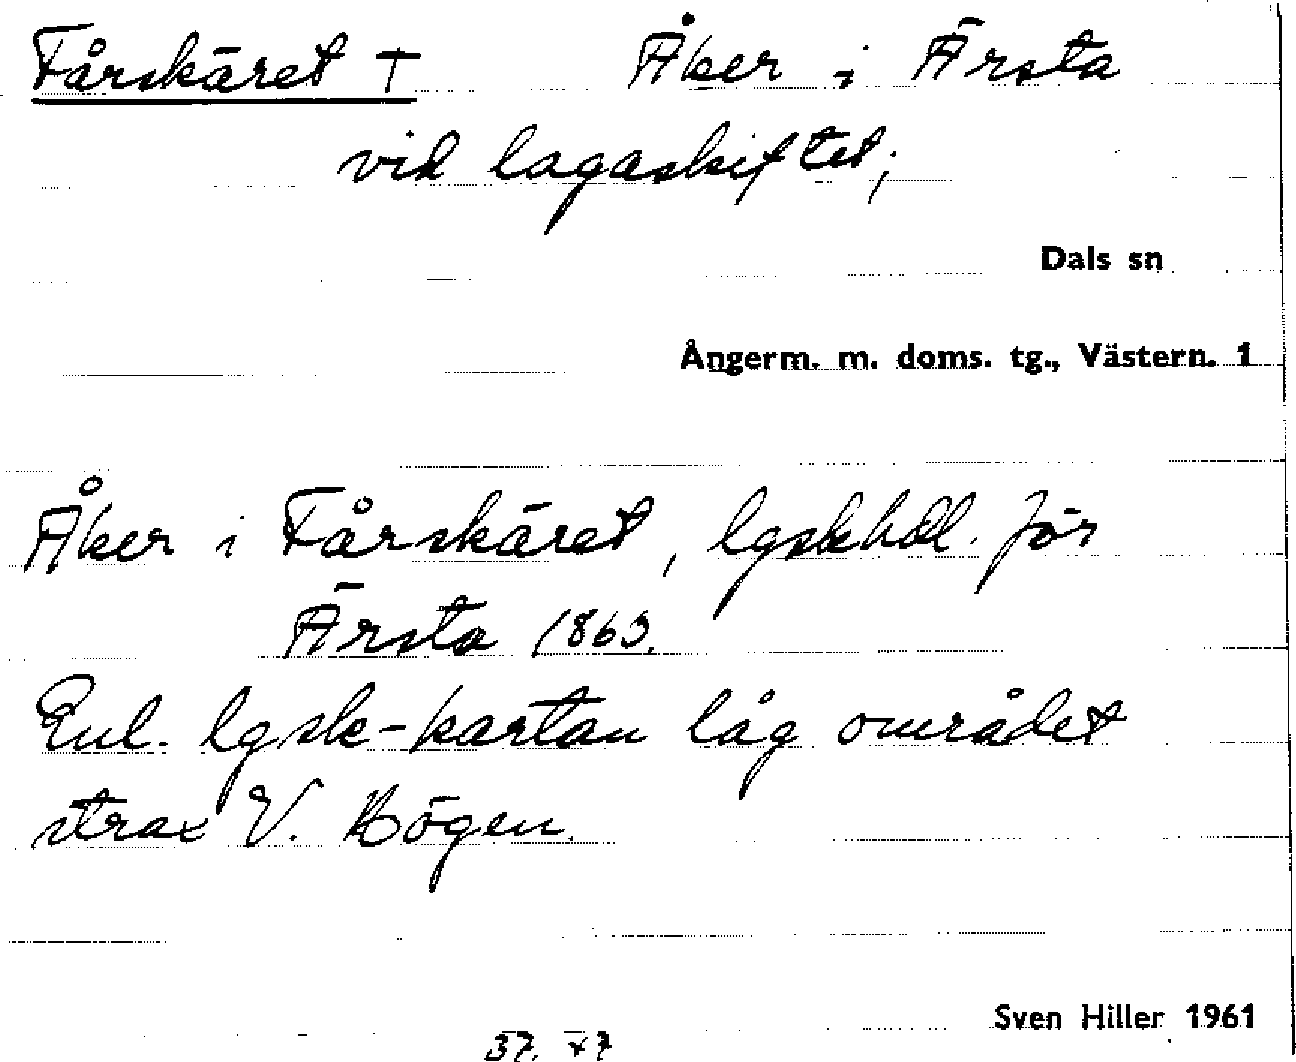 Fårskäret † Åker i Ärsta
vid lagaskiftet;
Dals sn
Ångerm. m. doms. tg., Västern. 1
Åker i Fårskäret, lgskhdl. för
Ärsta 1863.
Enl. lgsk-kartan låg området
strax V. Högen.
Sven Hiller 1961
37.